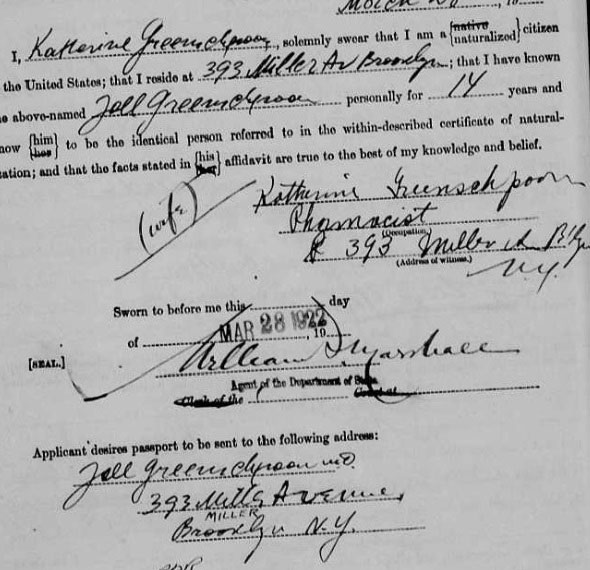 March 28
I, Katherine Greenschpoon, solemnly swear that I am a {native / naturalized} citizen
the United States; that I reside at 393 Miller Av Brooklyn; that I have known
above-named Joll Greenschpoon personally for 14 years and
now {him / her} to be the identical person referred to in the within-described certificate of natural-
zation; and that the facts stated in {his / her} affidavit are true to the best of my knowledge and belief.
(wife)
Katherine Greenschpoon
Phgmacist
(Occupation.)
393 Miller A B'lyn
(Address of witness.)
N.Y.
Sworn to before me this day
of MAR 28 1922, 19
[SEAL.]
William S. Marshall
Agent of the Department of State
Clerk of the Court at
Applicant desires passport to be sent to the following address:
Joll Greenschpoon M.D.
393 Mills Avenue,
MILLER
Brooklyn N.Y.